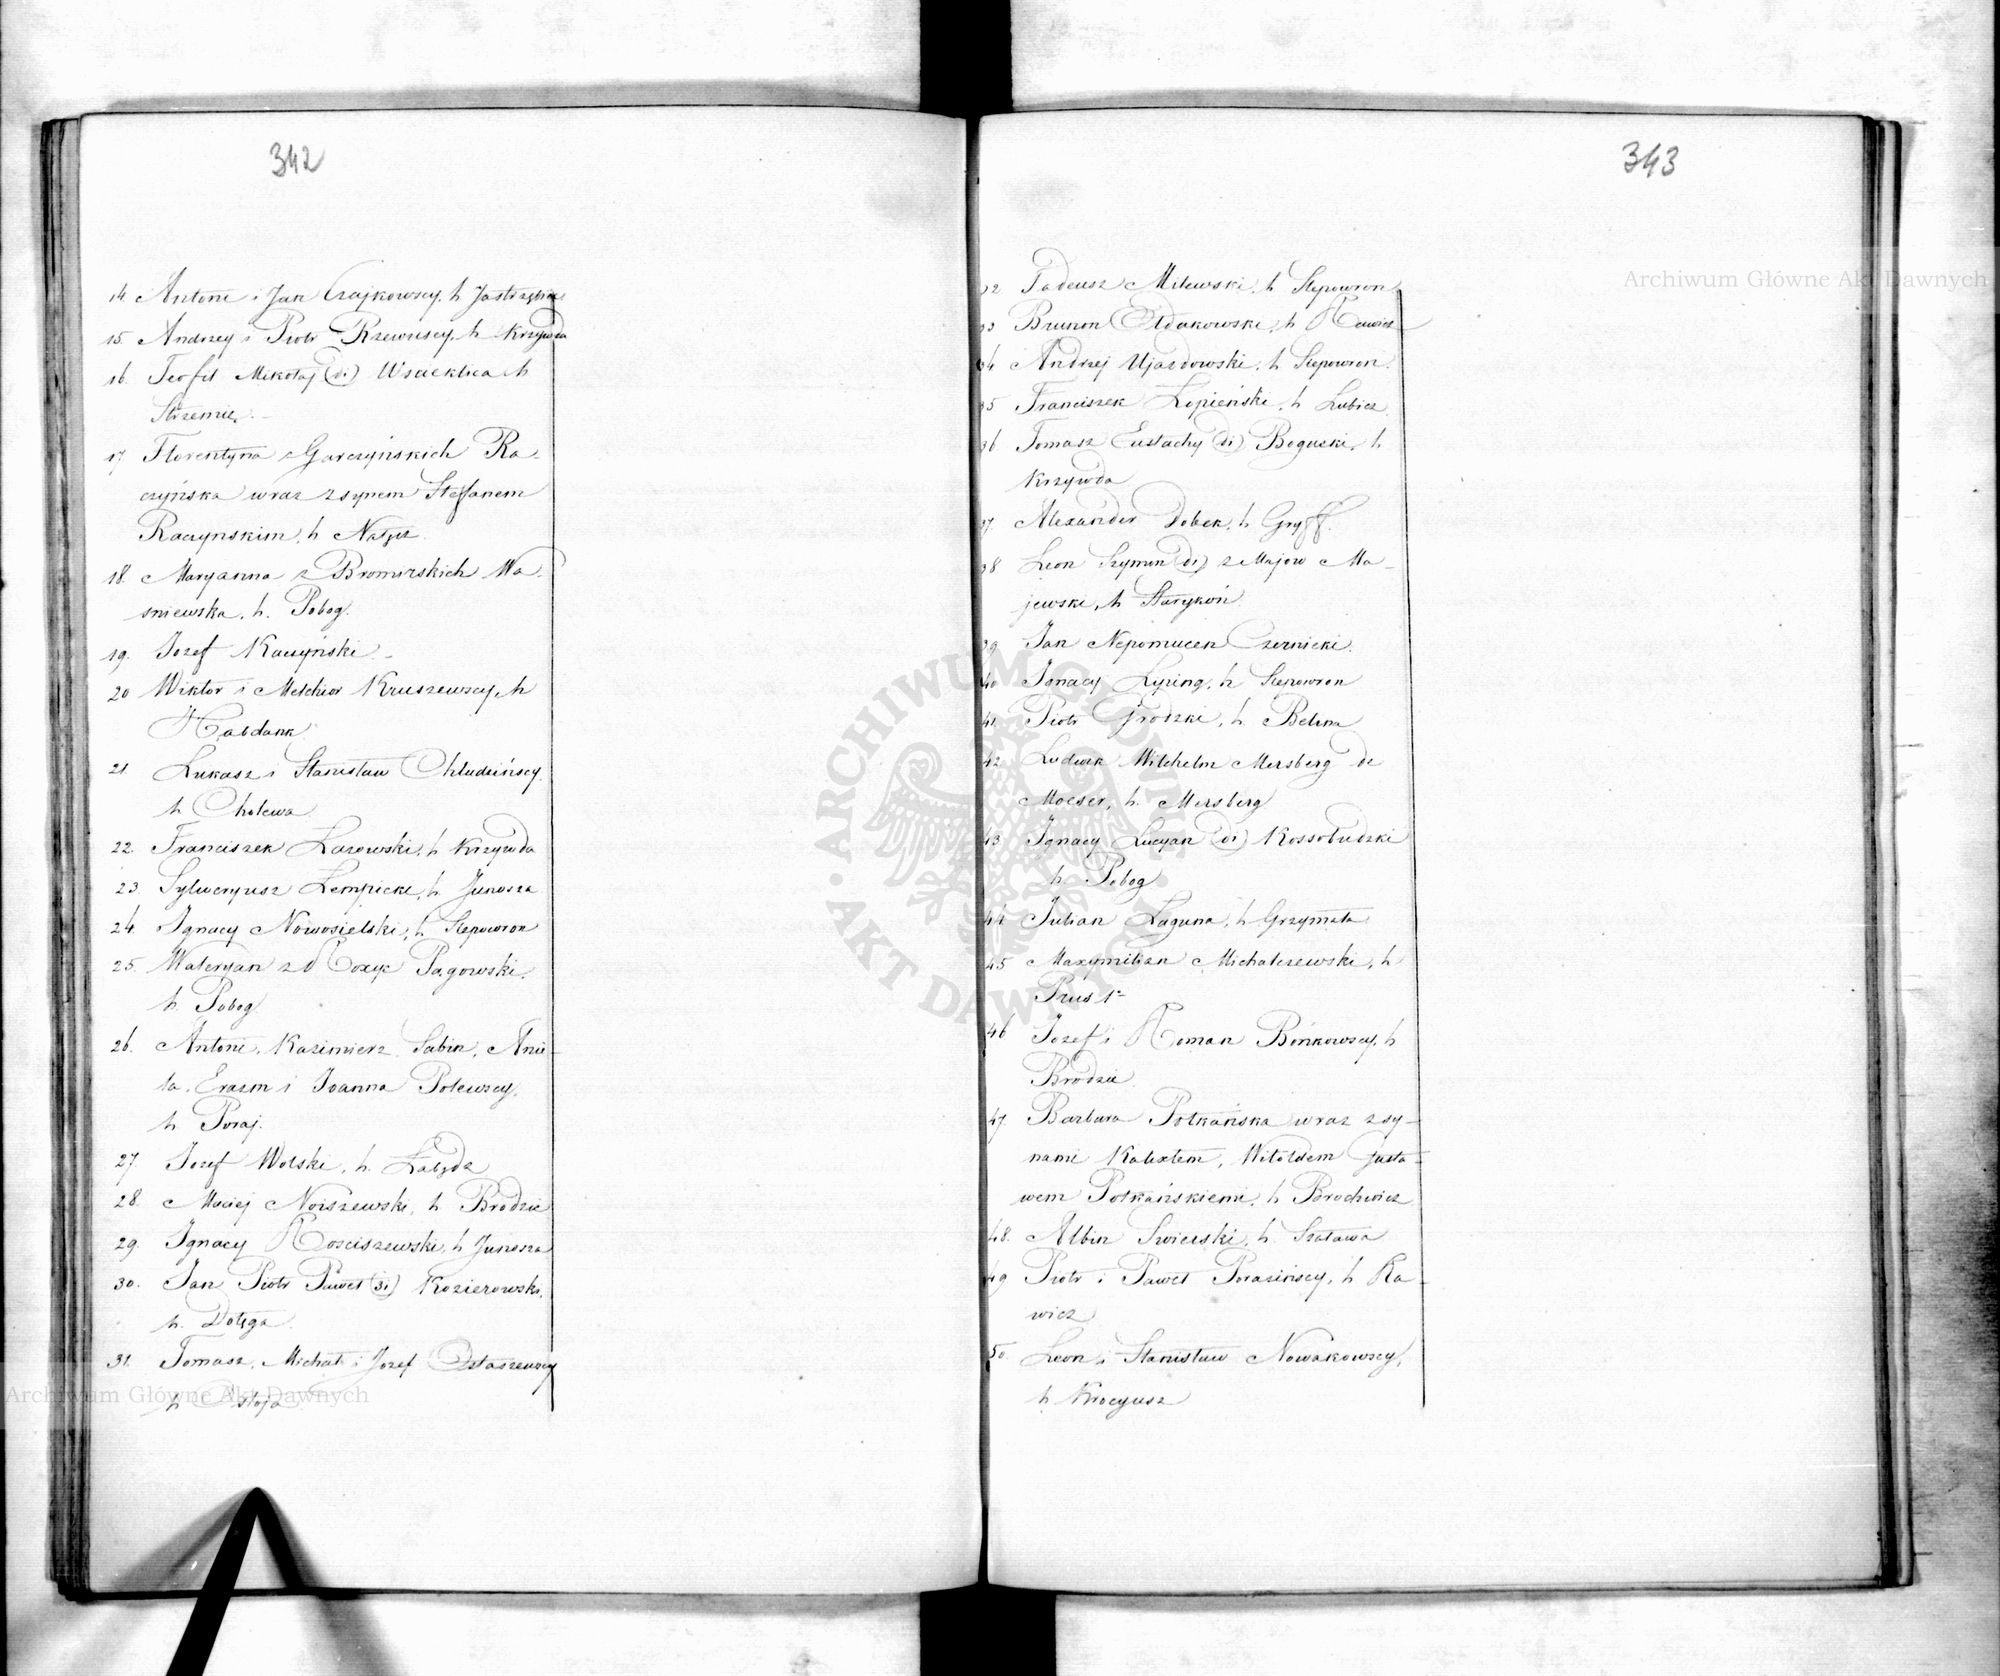 342
14. Antoni i Jan Czajkowscy, h. Jastrzębiec
15. Andrzej i Piotr Rzewuscy, h. Krzywda
16. Teofil Mikołaj (2i.) Wszeklica h
Strzemię.
17. Florentyna z Garczyńskich Ra-
czyńska wraz z synem Steffanem
Raczynskim, h. Nałęcz.
18. Maryanna z Bromirskich Wa-
śniewska, h. Pobog.
19. Jozef Kaczyński.
20 Wiktor i Melchior Kruszewscy, h
Habdank.
21. Łukasz i Stanisław Chludzińscy
h Cholewa
22. Franciszek Łazowski, h Krzywda
23 Sylweryusz Łempicki, h. Junosza
24. Ignacy Nowosielski, h Slepowron
25. Waleryan z Pagowski,
h. Pobog
26. Antoni, Kazimierz Sabin, Anie-
la, Erazm i Joanna Polewscy,
h Poraj.
27. Jozef Wolski, h. Łabędz
28. Maciej Noiszewski, h Brodzic
29. Ignacy Rosciszewski, h Junosza
30. Jan Piotr Paweł (3i) Kozierowski,
h. Dołęga
31. Tomasz, Michał i Jozef Ostaszewscy
h Ostoja
343
32. Tadeusz Milewski, h Slepowron
33 Brunon Ołdakowski, h Rawicz
34 Andrzej Ujazdowski, h Slepowron.
35 Franciszek Łopieński, h Lubicz
36 Tomasz Eustachy (2i) Bogucki, h
Krzywda
37. Alexander Dobek, h Gryff.
38 Leon Szymon (2i) z Majow Ma-
jewski, h Starykoń.
39 Jan Nepomucen Czernicki.
40 Ignacy Lyzing, h Slepowron
41. Piotr Grodzki, h. Belina
42 Ludwik Wilchelm Mersberg de
Moeser, h. Mersberg
43 Ignacy Lucyan (2i) Kossobudzki
h. Pobog
44 Julian Łaguna, h Grzymała
45 Maxymilian Michalczewski, h
Prus 1º
46 Jozef i Roman Bońkowscy, h
Brodzic
47. Barbara Potkańska wraz z sy-
nami Kalixtem, Witoldem Gusta-
wem Potkańskiemi, h Brochwicz
48. Albin Swierski, h. Szaława
49. Piotr i Paweł Porazińscy, h Ra-
wicz
50. Leon i Stanisław Nowakowscy,
h Krocyusz
ARCHIWUM GŁÓWNE AKT DAWNYCH
Archiwum Główne Akt Dawnych
Archiwum Główne Akt Dawnych